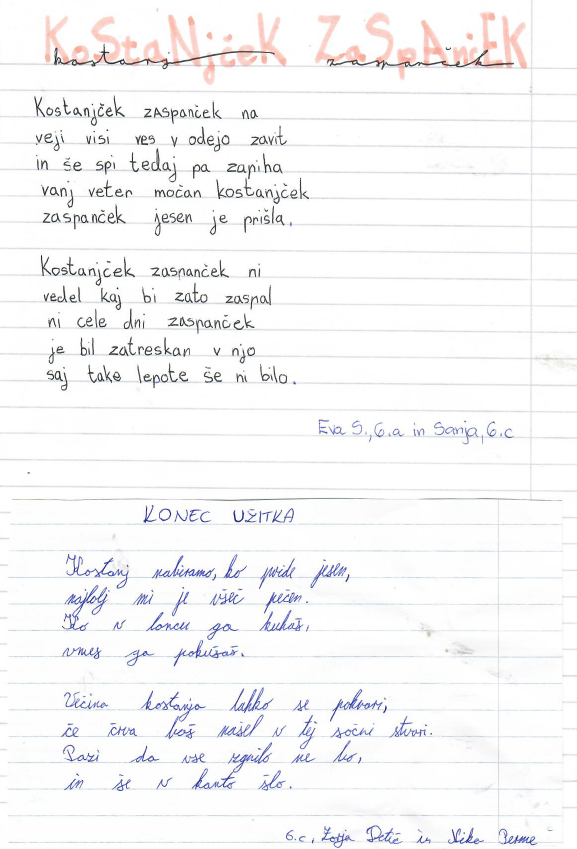 KoStaNjčeK ZaSpAnčEK
kostanj zaspanček
Kostanjček zaspanček na
veji visi ves v odejo zavit
in še spi tedaj pa zapiha
vanj veter močan kostanjček
zaspanček jesen je prišla.
Kostanjček zaspanček ni
vedel kaj bi zato zaspal
ni cele dni zaspanček
je bil zatreskan v njo
saj take lepote še ni bilo.
Eva S., 6.a in Sanja, 6.c
KONEC UŽITKA
Kostanj nabiramo, ko pride jesen,
najbolj mi je všeč pečen.
Ko v loncu ga kuhaš,
vmes ga pokušaš.
Večina kostanja lahko se pokvari,
če črva boš našel v tej sočni stvari.
Pazi da vse zgnilo ne bo,
in še v kanto šlo.
6.c, Zoja Petič in Nika Perme